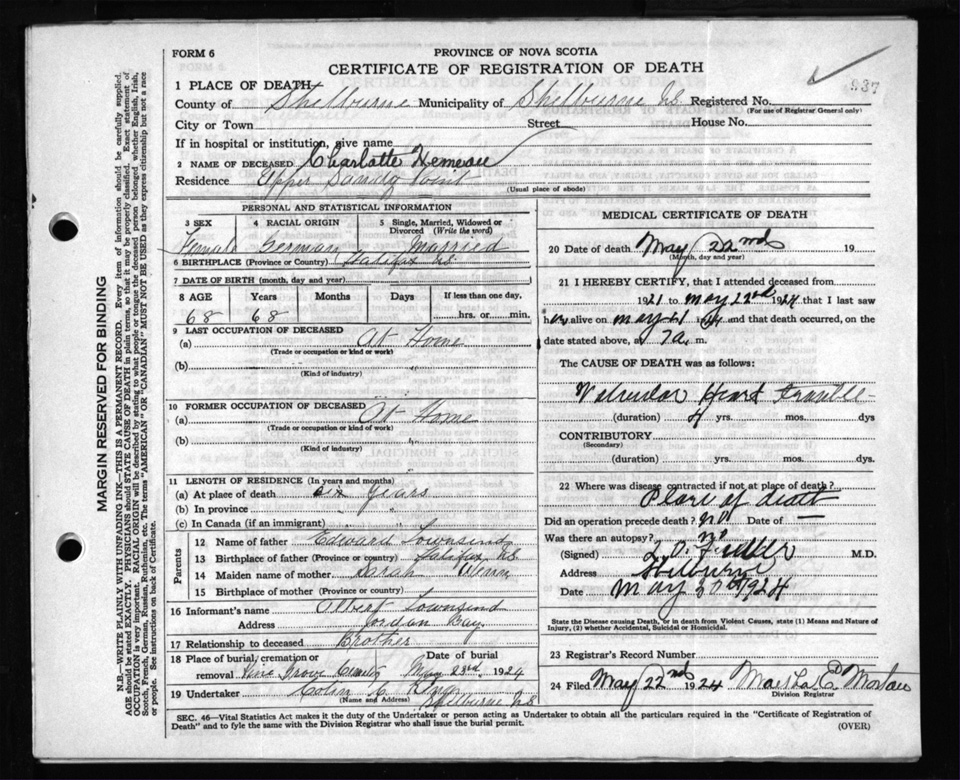 FORM 6
PROVINCE OF NOVA SCOTIA
CERTIFICATE OF REGISTRATION OF DEATH
937
1 PLACE OF DEATH
County of Shelburne Municipality of Shelburne N.S. Registered No.
(For use of Registrar General only)
City or Town Street House No.
If in hospital or institution, give name
2 NAME OF DECEASED Charlotte
Residence Upper Sandy Point
(Usual place of abode)
PERSONAL AND STATISTICAL INFORMATION
3 SEX 4 RACIAL ORIGIN 5 Single, Married, Widowed or Divorced (Write the word)
Female German Married
6 BIRTHPLACE (Province or Country) Halifax N.S.
7 DATE OF BIRTH (month, day and year)
8 AGE Years Months Days If less than one day,
68 68 hrs. or min.
9 LAST OCCUPATION OF DECEASED
(a) At Home
(Trade or occupation or kind or work)
(b) "
(Kind of industry)
10 FORMER OCCUPATION OF DECEASED
(a) At Home
(Trade or occupation or kind of work)
(b) "
(Kind of industry)
11 LENGTH OF RESIDENCE (In years and months)
(a) At place of death six years
(b) In province " "
(c) In Canada (if an immigrant) " "
Parents
12 Name of father Edward Townsend
13 Birthplace of father (Province or country) Halifax N.S.
14 Maiden name of mother Sarah
15 Birthplace of mother (Province or country)
16 Informant's name Albert Townsend
Address Jordan Bay
17 Relationship to deceased Brother
18 Place of burial, cremation or removal Pine Grove Cemetery Date of burial May 23rd 1924
19 Undertaker Colin C.
(Name and Address) Shelburne N.S.
MEDICAL CERTIFICATE OF DEATH
20 Date of death May 22nd 19
(Month, day and year)
21 I HEREBY CERTIFY, that I attended deceased from
1921 to May 22nd 1924 that I last saw
her alive on May 21 1924 and that death occurred, on the
date stated above, at 7 a. m.
The CAUSE OF DEATH was as follows:
Valvular Heart Trouble
(duration) 4 yrs. mos. dys
CONTRIBUTORY
(Secondary)
(duration) yrs. mos. dys.
22 Where was disease contracted if not at place of death?
Place of death
Did an operation precede death? no Date of —
Was there an autopsy? no
(Signed) L.O. Fuller M.D.
Address Shelburne
Date May 30th 1924
State the Disease causing Death, or in death from Violent Causes, state (1) Means and Nature of Injury, (2) whether Accidental, Suicidal or Homicidal.
23 Registrar's Record Number
24 Filed May 22nd 1924 Martha
Division Registrar
SEC. 46—Vital Statistics Act makes it the duty of the Undertaker or person acting as Undertaker to obtain all the particulars required in the "Certificate of Registration of
Death" and to fyle the same with the Division Registrar who shall issue the burial permit.
(OVER)
MARGIN RESERVED FOR BINDING
N.B.—WRITE PLAINLY WITH UNFADING INK—THIS IS A PERMANENT RECORD. Every item of information should be carefully supplied.
AGE should be stated EXACTLY. PHYSICIANS should STATE CAUSE OF DEATH in plain terms, so that it may be properly classified. Exact statement of
OCCUPATION is very important. RACIAL ORIGIN will be described by stating to what people or tongue the deceased person belonged whether English, Irish,
Scotch, French, German, Russian, Ruthenian, etc. The terms "AMERICAN" OR "CANADIAN" MUST NOT BE USED as they express citizenship but not a race
or people. See instructions on back of Certificate.